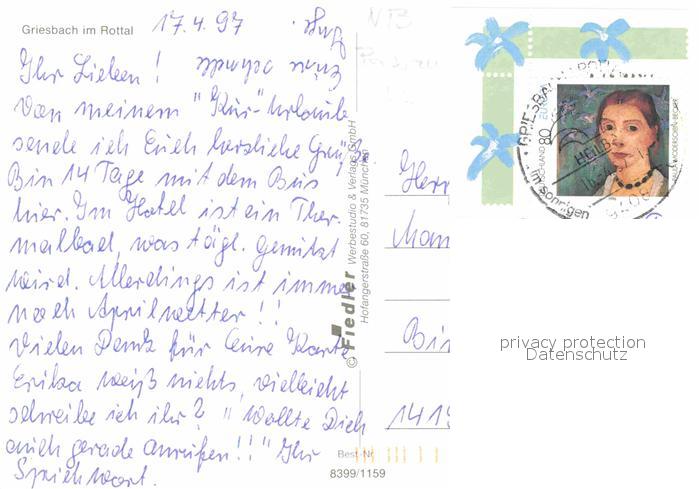 Griesbach im Rottal
17.4.97
Ihr Lieben !
Von meinem "Kur-" Urlaub
sende ich Euch herzliche Grüße
Bin 14 Tage mit dem Bus
hier. Im Hotel ist ein Ther-
malbad, was tägl. genützt
wird. Allerdings ist immer
noch Aprilwetter !!
Vielen Dank für Eure Karte
Erika weiß nichts, vielleicht
schreibe ich ihr? "Wollte Dich
auch gerade anrufen!!" Ihr
Sprichwort.
© Fiedler Werbestudio & Verlags-GmbH
Hofangerstraße 60, 81735 München
Best-Nr.
8399/1159
Herr
1419
80
privacy protection
Datenschutz